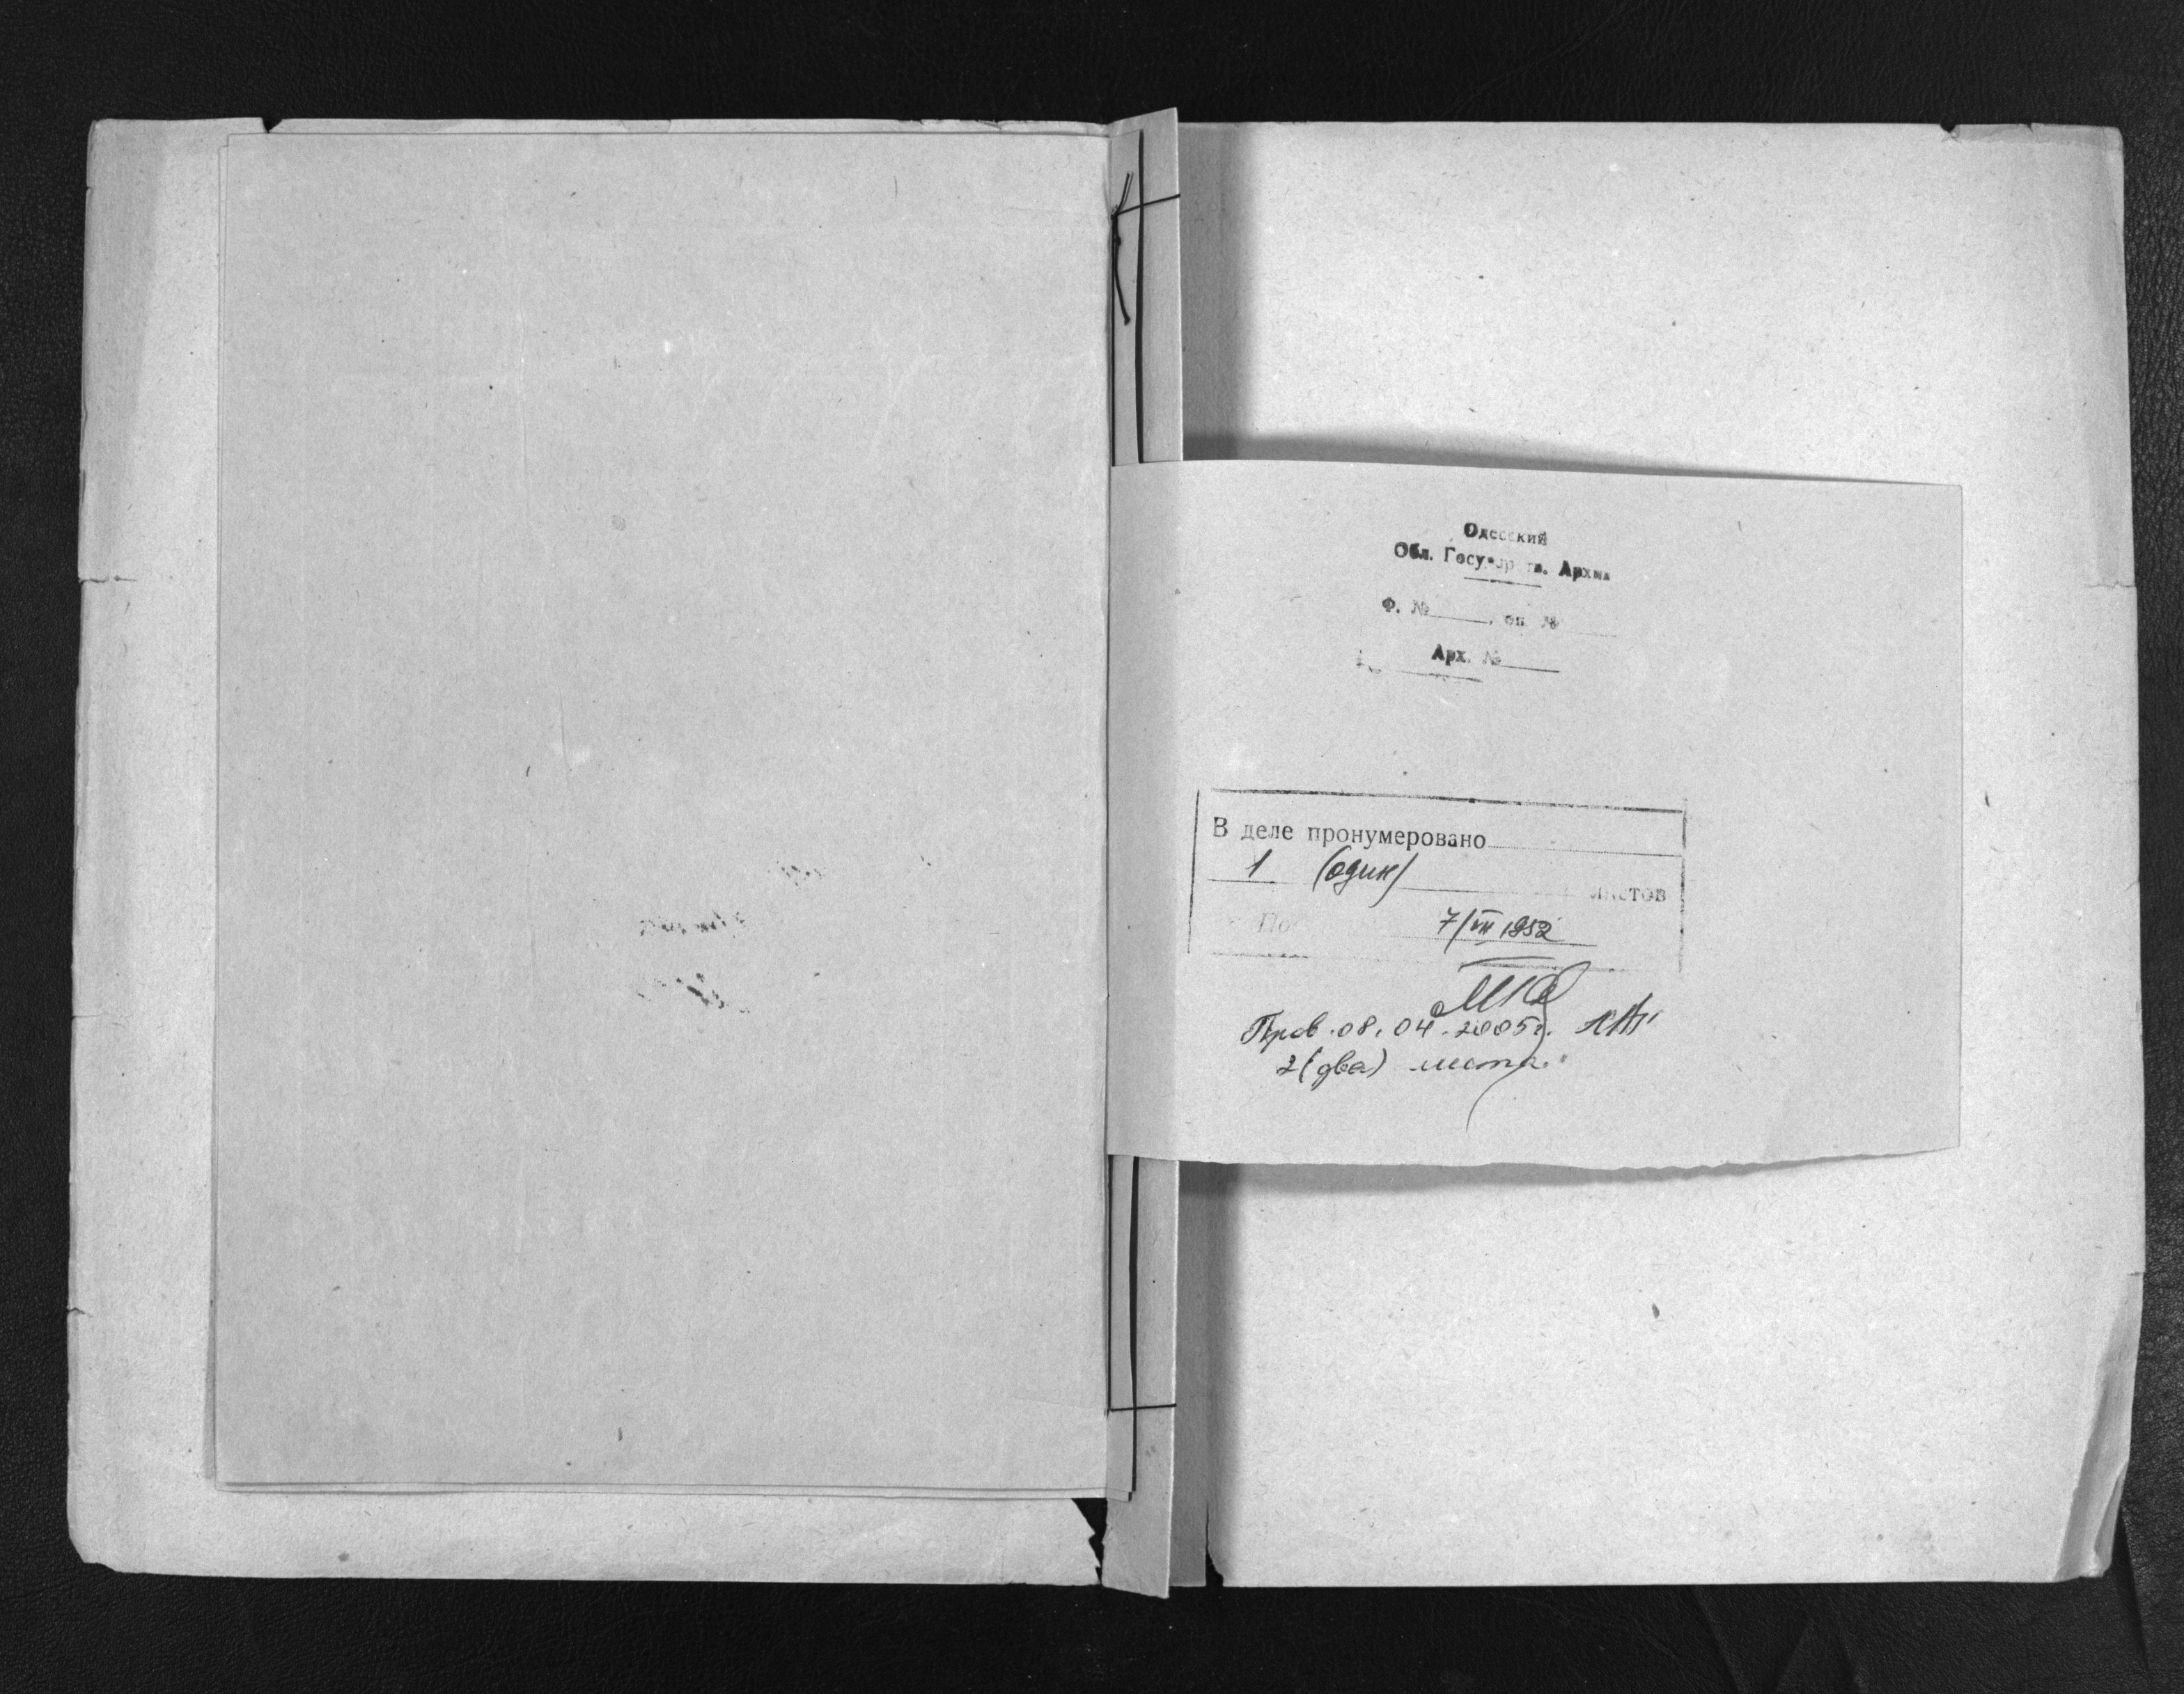 Одесский
Обл. Государств. Архив
Ф. №____, оп №____
Арх. №____
В деле пронумеровано
1 (один)
листов
7/VII 1952
Пров. 08.04.2005г.
2 (два) листа.